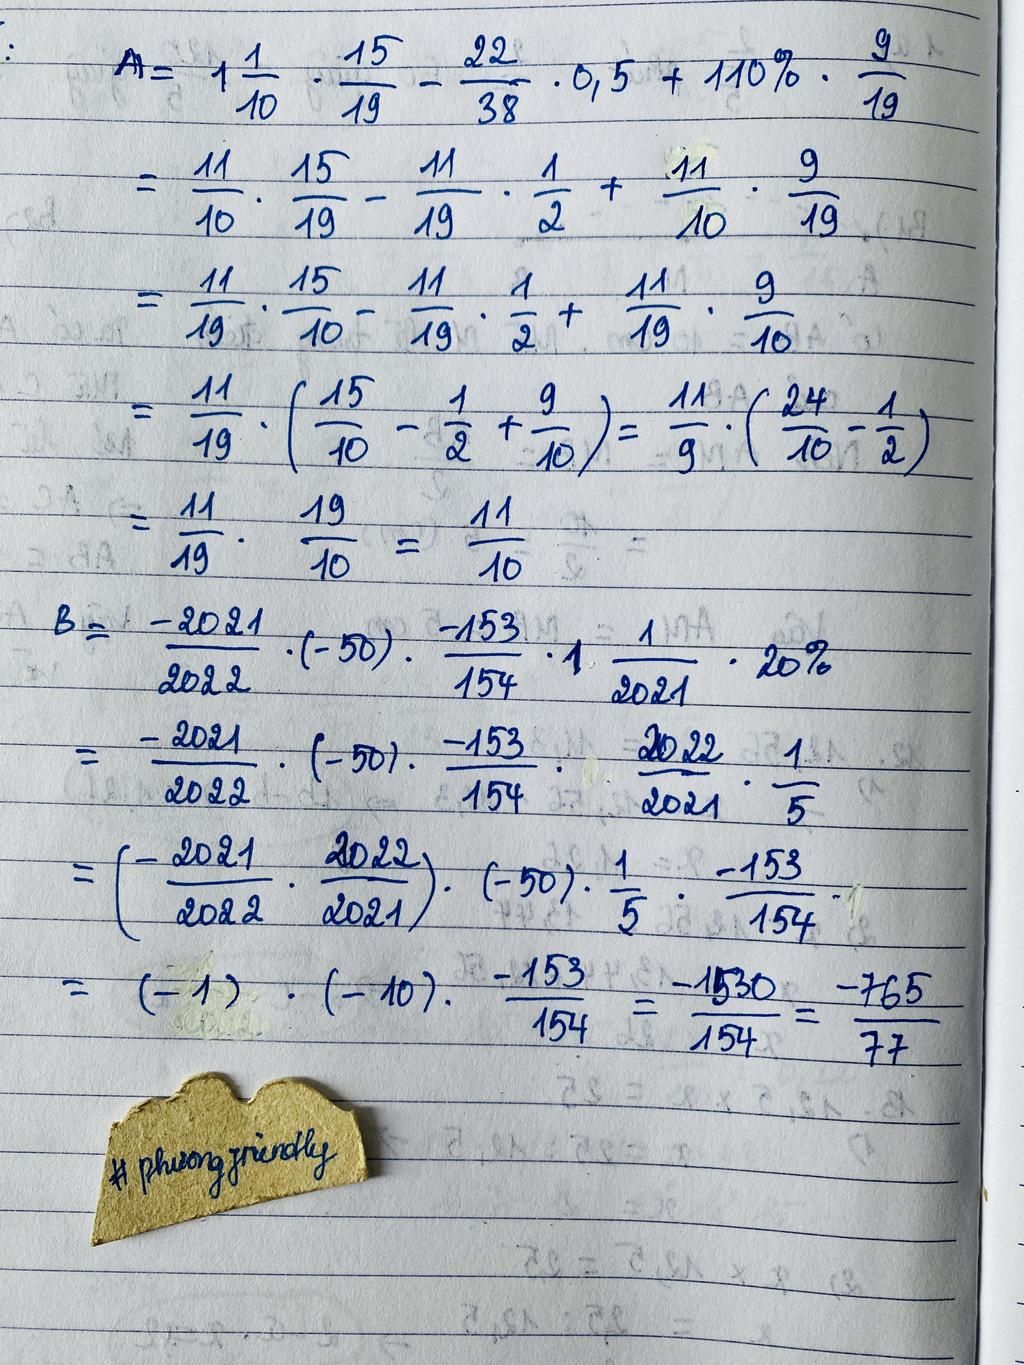 A = 1 1/10 . 15/19 - 22/38 . 0,5 + 110% . 9/19
= 11/10 . 15/19 - 11/19 . 1/2 + 11/10 . 9/19
= 11/19 . 15/10 - 11/19 . 1/2 + 11/19 . 9/10
= 11/19 . (15/10 - 1/2 + 9/10) = 11/9 . (24/10 - 1/2)
= 11/19 . 19/10 = 11/10
B = -2021/2022 . (-50) . -153/154 . 1 1/2021 . 20%
= -2021/2022 . (-50) . -153/154 . 2022/2021 . 1/5
= (-2021/2022 . 2022/2021) . (-50) . 1/5 . -153/154 .
= (-1) . (-10) . -153/154 = -1530/154 = -765/77
# phuongfriendly